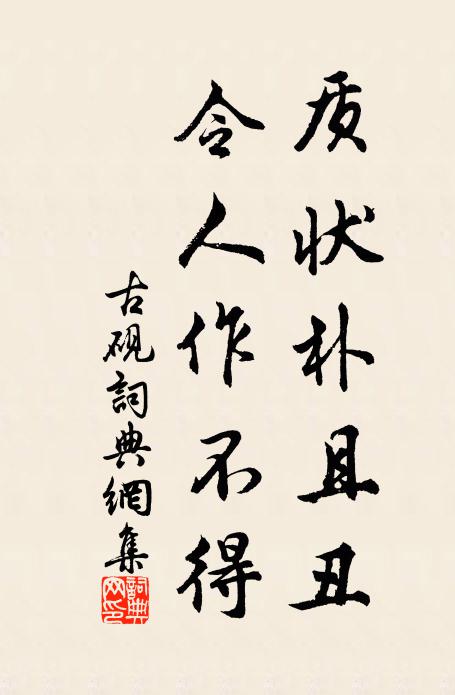 质状朴且丑
令人作不得
古砚詞典網集
詞典网印